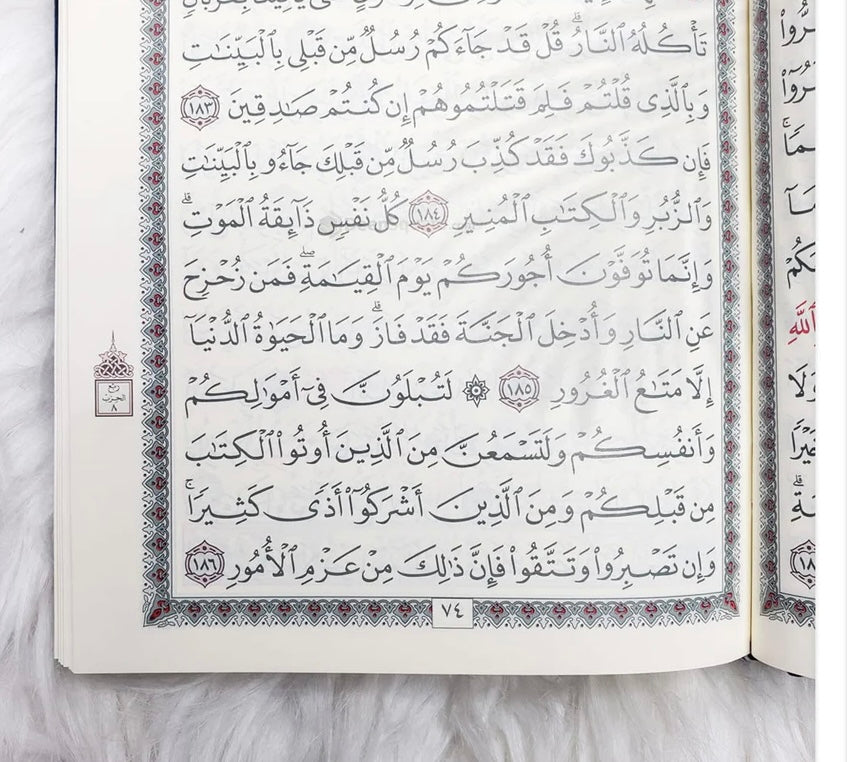 تَأۡكُلُهُ ٱلنَّارُۗ قُلۡ قَدۡ جَآءَكُمۡ رُسُلٞ مِّن قَبۡلِي بِٱلۡبَيِّنَٰتِ
وَبِٱلَّذِي قُلۡتُمۡ فَلِمَ قَتَلۡتُمُوهُمۡ إِن كُنتُمۡ صَٰدِقِينَ ١٨٣
فَإِن كَذَّبُوكَ فَقَدۡ كُذِّبَ رُسُلٞ مِّن قَبۡلِكَ جَآءُو بِٱلۡبَيِّنَٰتِ
وَٱلزُّبُرِ وَٱلۡكِتَٰبِ ٱلۡمُنِيرِ ١٨٤ كُلُّ نَفۡسٖ ذَآئِقَةُ ٱلۡمَوۡتِۗ
وَإِنَّمَا تُوَفَّوۡنَ أُجُورَكُمۡ يَوۡمَ ٱلۡقِيَٰمَةِۖ فَمَن زُحۡزِحَ
عَنِ ٱلنَّارِ وَأُدۡخِلَ ٱلۡجَنَّةَ فَقَدۡ فَازَۗ وَمَا ٱلۡحَيَوٰةُ ٱلدُّنۡيَآ
إِلَّا مَتَٰعُ ٱلۡغُرُورِ ١٨٥ ۞ لَتُبۡلَوُنَّ فِيٓ أَمۡوَٰلِكُمۡ
وَأَنفُسِكُمۡ وَلَتَسۡمَعُنَّ مِنَ ٱلَّذِينَ أُوتُواْ ٱلۡكِتَٰبَ
مِن قَبۡلِكُمۡ وَمِنَ ٱلَّذِينَ أَشۡرَكُوٓاْ أَذٗى كَثِيرٗاۚ
وَإِن تَصۡبِرُواْ وَتَتَّقُواْ فَإِنَّ ذَٰلِكَ مِنۡ عَزۡمِ ٱلۡأُمُورِ ١٨٦
٧٤
ربع
الحزب
٨
ٱللَّهِ
وَلَا